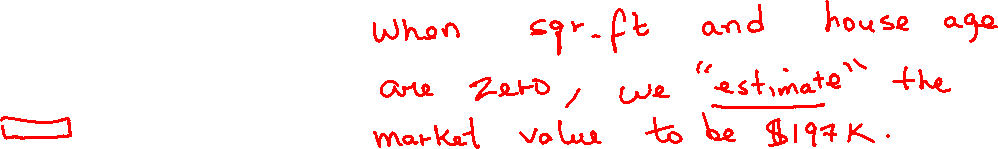 When sqr.ft and house age
are zero, we "estimate" the
market value to be $197K.